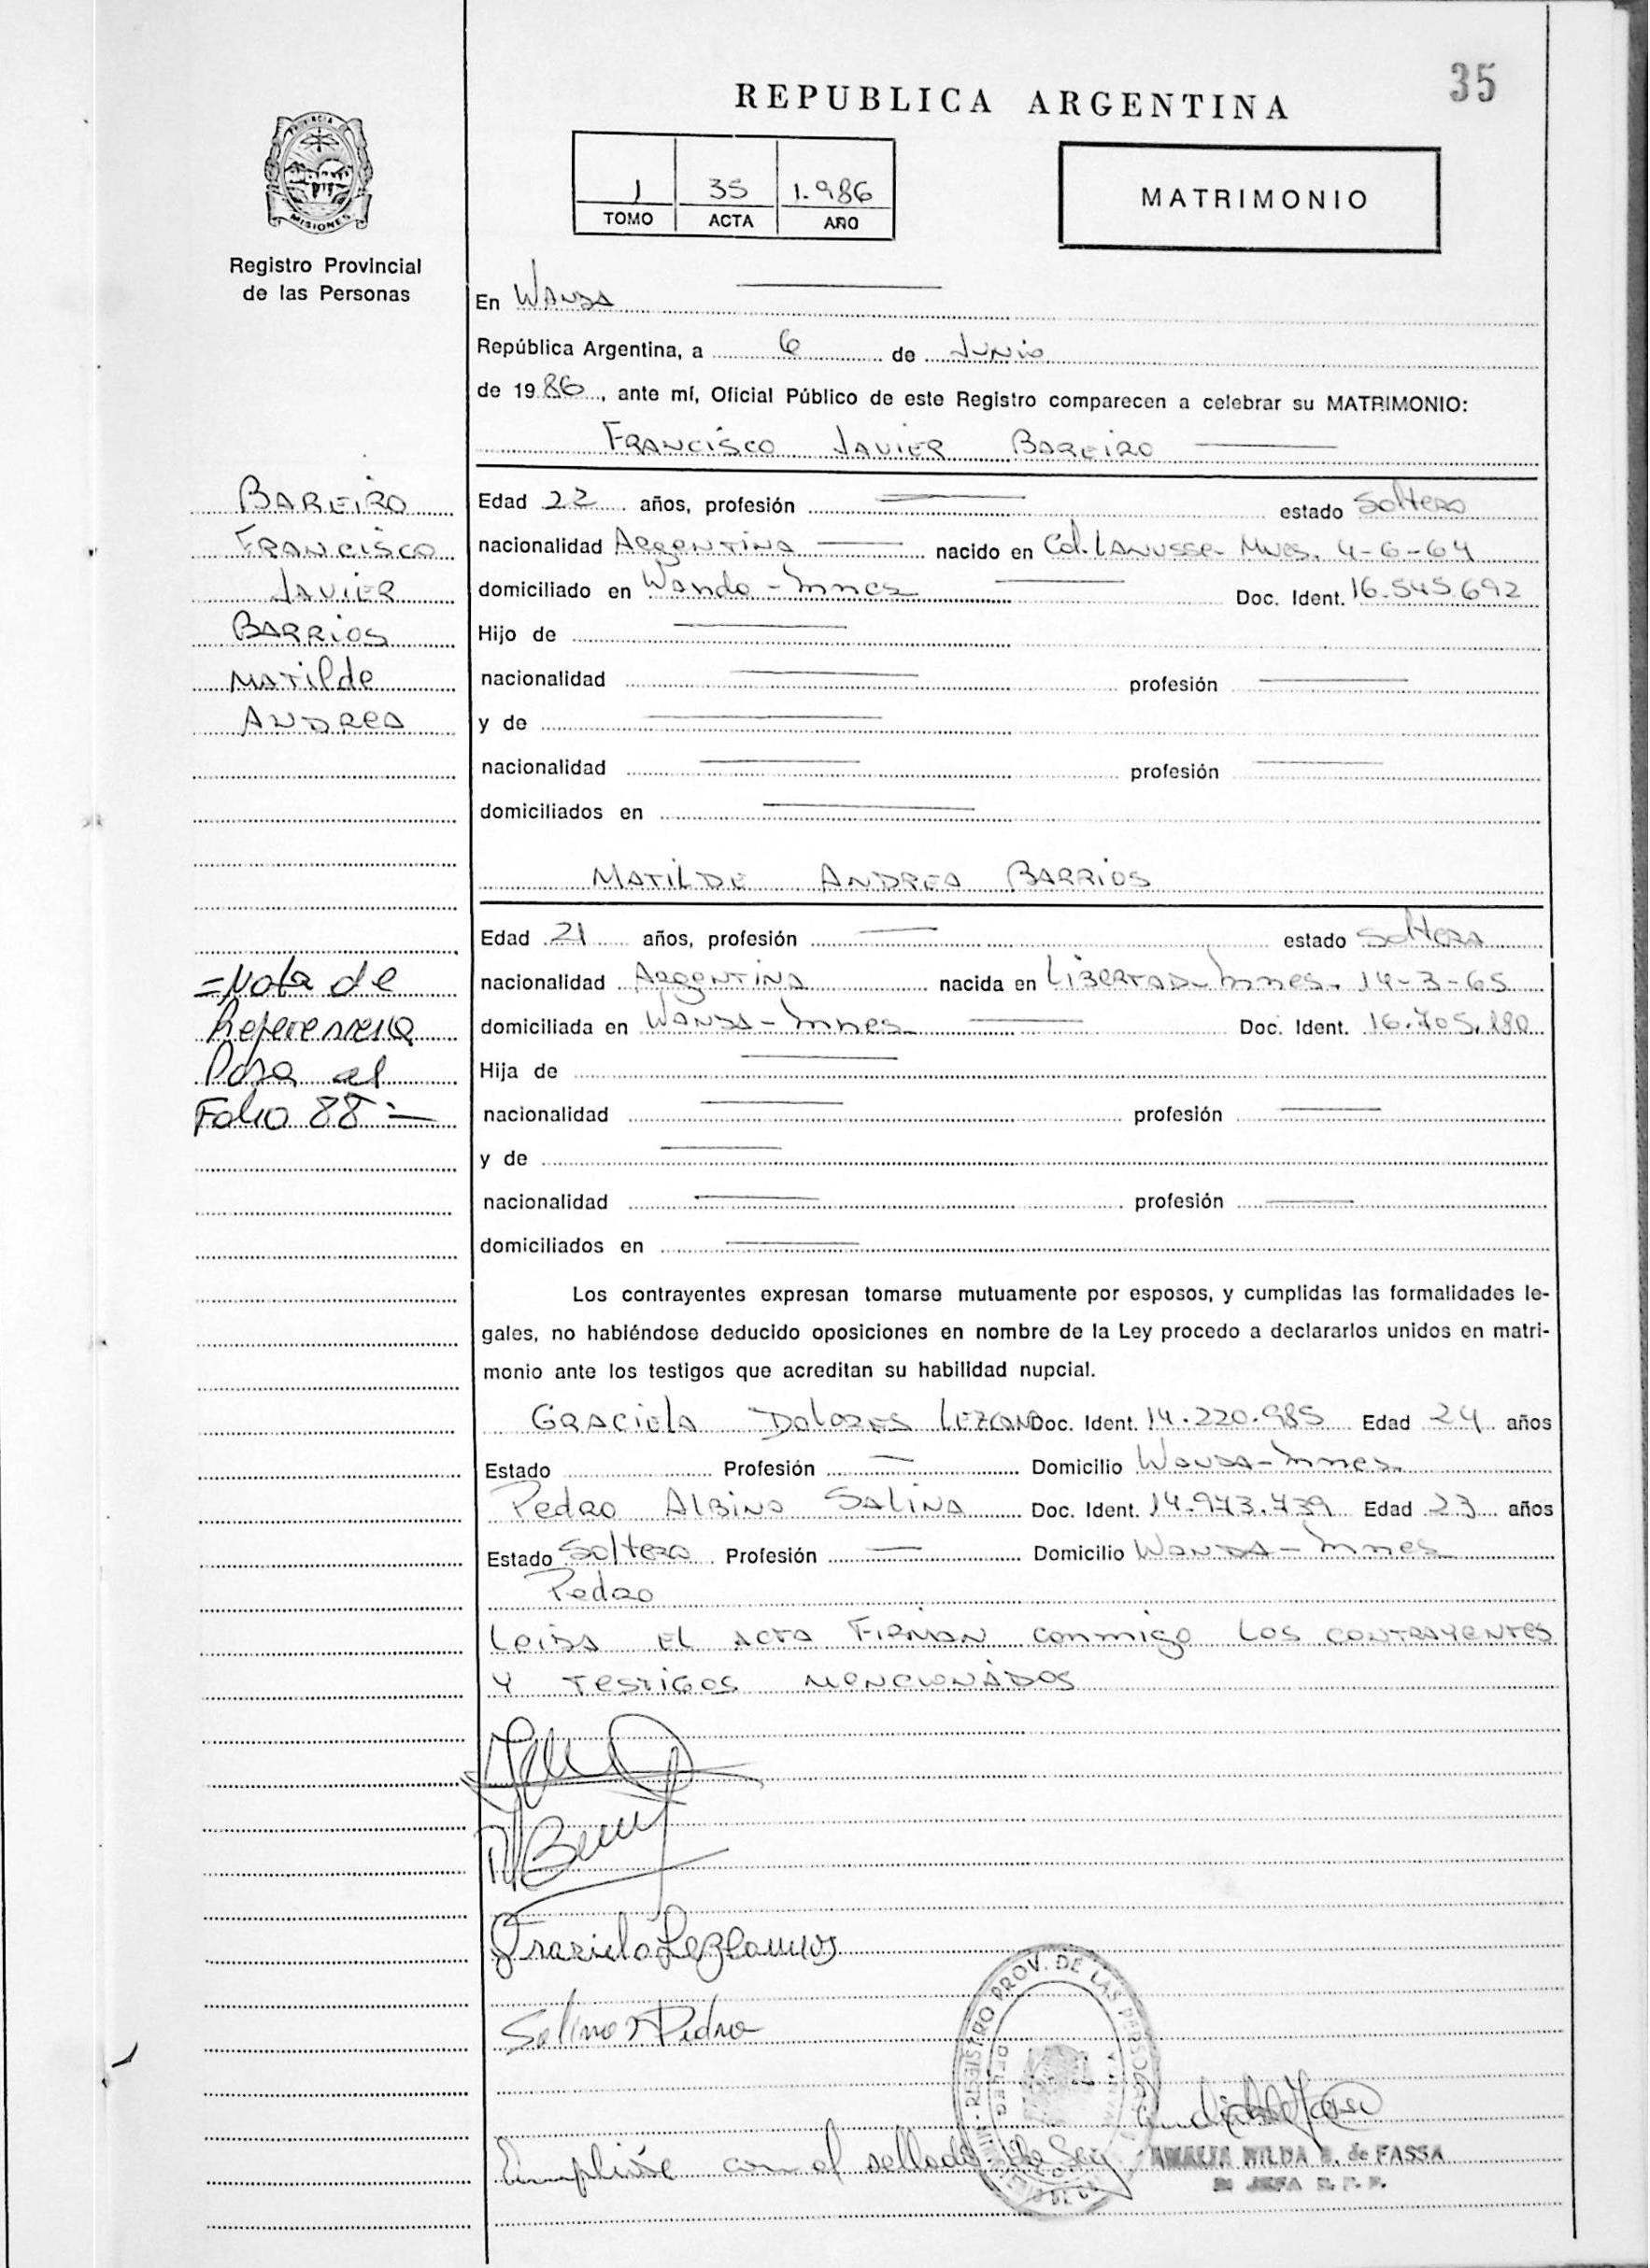 35
REPUBLICA ARGENTINA
PROVINCIA
MISIONES
Registro Provincial
de las Personas
1 35 1.986
TOMO ACTA AÑO
MATRIMONIO
En WANDA
República Argentina, a 6 de JUNIO
de 1986, ante mí, Oficial Público de este Registro comparecen a celebrar su MATRIMONIO:
FRANCISCO JAVIER BAREIRO
BAREIRO
FRANCISCO
JAVIER
BARRIOS
MATILDE
ANDREA
Edad 22 años, profesión estado soltero
nacionalidad ARGENTINA nacido en Col. LANUSSE- Mnes. 4-6-64
domiciliado en Wanda - Mnes Doc. Ident. 16.545.692
Hijo de
nacionalidad profesión
y de
nacionalidad profesión
domiciliados en
MATILDE ANDREA BARRIOS
Edad 21 años, profesión estado soltera
nacionalidad ARGENTINA nacida en LIBERTAD- Mnes. 14-3-65
domiciliada en WANDA - Mnes Doc. Ident. 16.705.190
Hija de
nacionalidad profesión
y de
nacionalidad profesión
domiciliados en
=Nota de
Referencia
Pasa al
Folio 88=
Los contrayentes expresan tomarse mutuamente por esposos, y cumplidas las formalidades le-
gales, no habiéndose deducido oposiciones en nombre de la Ley procedo a declararlos unidos en matri-
monio ante los testigos que acreditan su habilidad nupcial.
GRACIELA DOLORES LEZCANO Doc. Ident. 14.220.985 Edad 24 años
Estado Profesión Domicilio WANDA - Mnes.
Pedro ALBINO SALINA Doc. Ident. 14.973.739 Edad 23 años
Estado Soltero Profesión Domicilio WANDA - Mnes
Pedro
Leida el acta FIRMAN conmigo los contrayentes
y testigos mencionados
Salinas Pedro
REGISTRO PROV. DE LAS PERSONAS
Cumplióse con el sellado de Ley
AMALIA HILDA B. de FASSA
JEFA R. P. P.